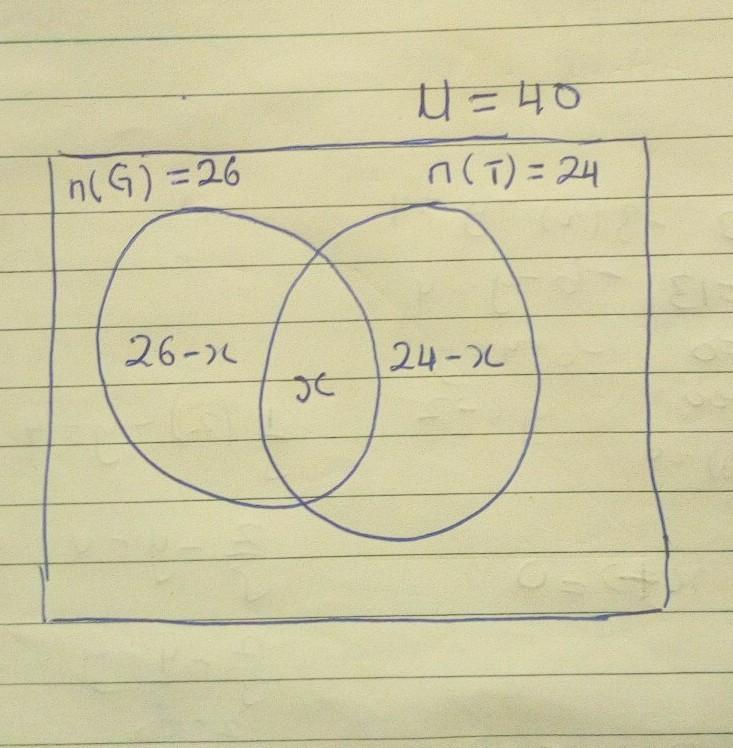 U = 40
n(G) = 26 n(T) = 24
26-x x 24-x